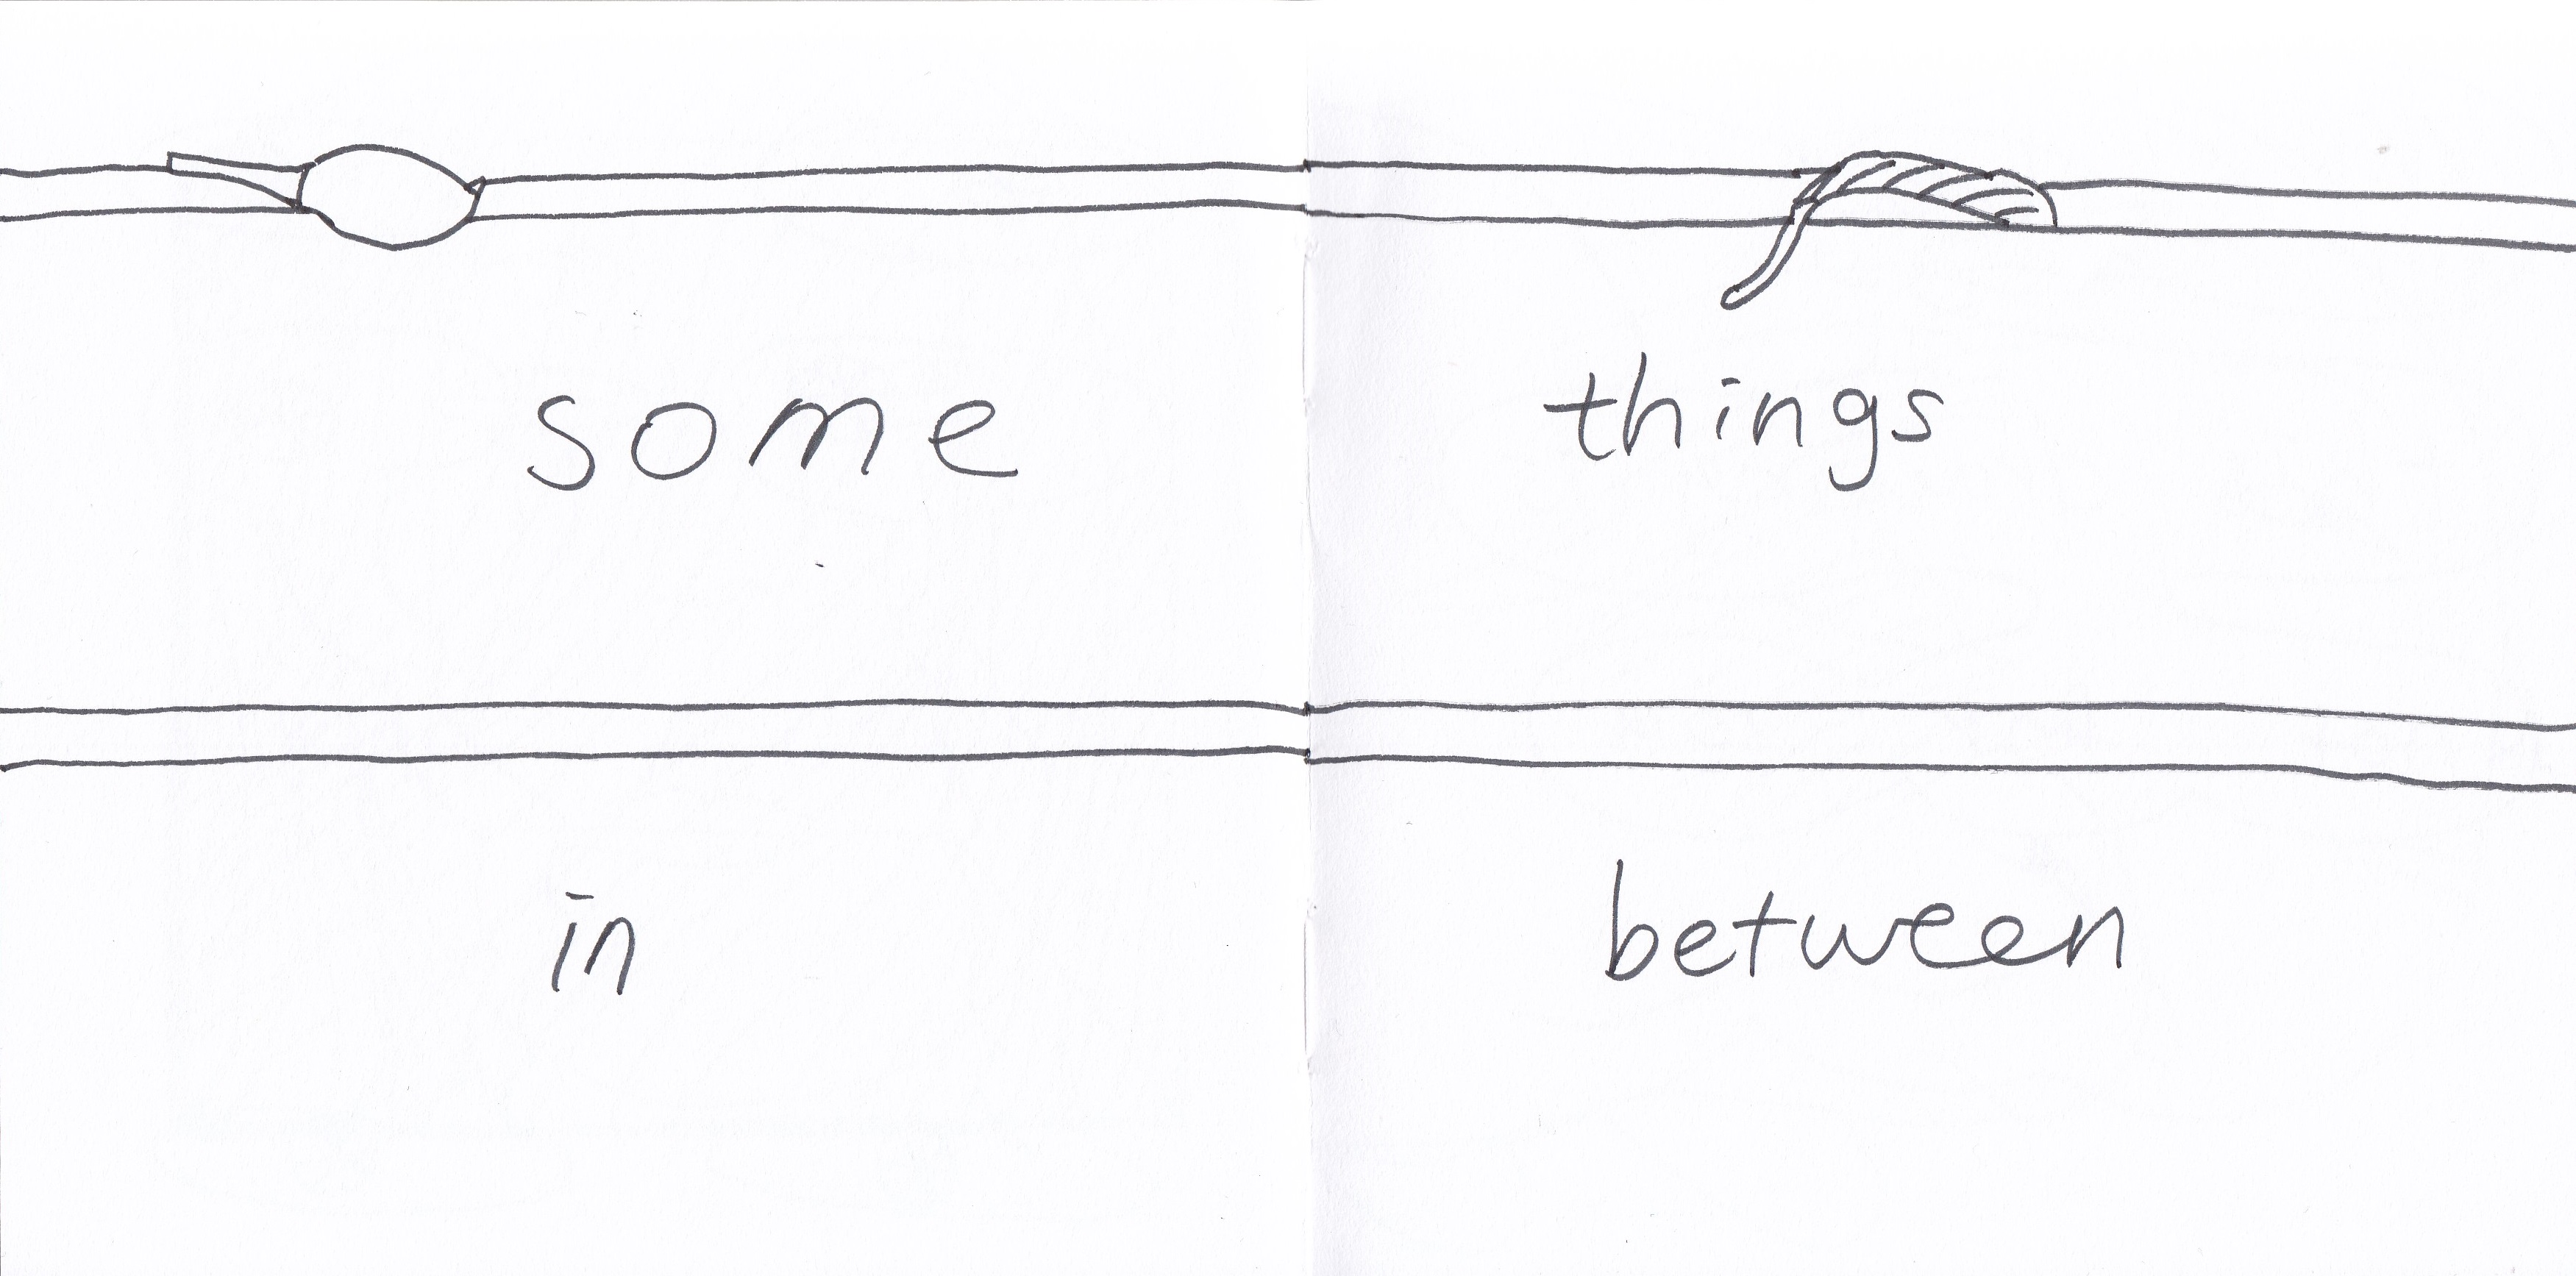 some things
in between